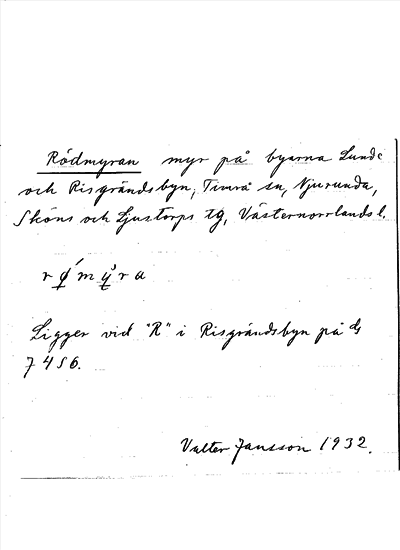 Rödmyran myr på byarna Lunde
och Risgrändsbyn, Timrå sn, Njurunda,
Sköns och Ljustorps tg, Västernorrlands l.
rø´my̆ra
Ligger vid "R" i Risgrändsbyn på ds
7456.
Valter Jansson 1932.